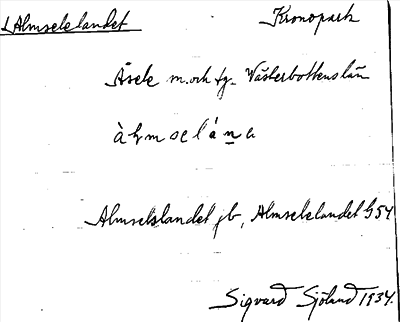 Almselelandet Kronopark
Åsele m. och tg. Västerbottens län
Almselslandet jb, Almselelandet G54
Sigvard Sjöland 1934.